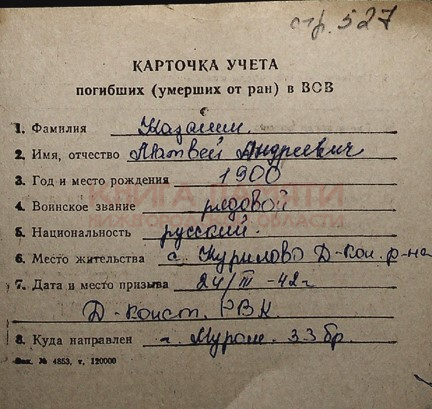 стр. 527
КАРТОЧКА УЧЕТА
погибших (умерших от ран) в ВОВ
1. Фамилия Казанин
2. Имя, отчество Матвей Андреевич
3. Год и место рождения 1900
КНИГА ПАМЯТИ
4. Воинское звание рядовой
НИЖЕГОРОДСКОЙ ОБЛАСТИ
5. Национальность русский.
6. Место жительства с. Курилово Д-Кон. р-на
7. Дата и место призыва 24/III-42г
Д-Конст. РВК
8. Куда направлен г. Муром. 33 бр.
Зак. № 4853, т. 120000